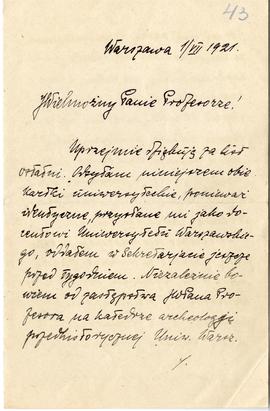 43
Warszawa 1/VII 1921.
JWielmożny Panie Profesorze!
Uprzejmie dziękuję za list
ostatni. Odsyłam niniejszem obie
kartki uniwersyteckie, ponieważ
identyczne, przysłane mi jako do-
centowi Uniwersytetu Warszawskie-
go, oddałem w Sekretarjacie jeszcze
przed tygodniem. Niezależnie bo-
wiem od zastępstwa JWPana Pro-
fesora na katedrze archeologji
przedhistorycznej Uniw. Warsz.